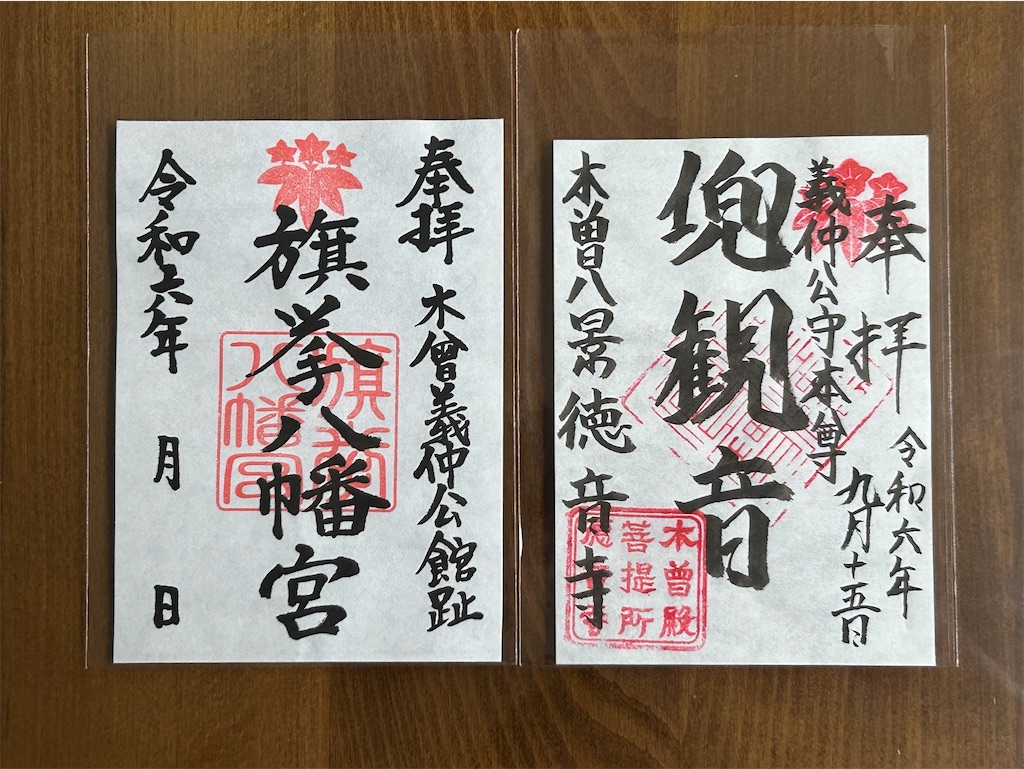 奉拝
木曾義仲公館趾
旗挙八幡宮
旗挙
八幡宮
令和六年　月　日
奉拝
令和六年
九月十五日
義仲公守本尊
兜観音
木曽八景徳音寺
木曽殿
菩提所
徳音寺